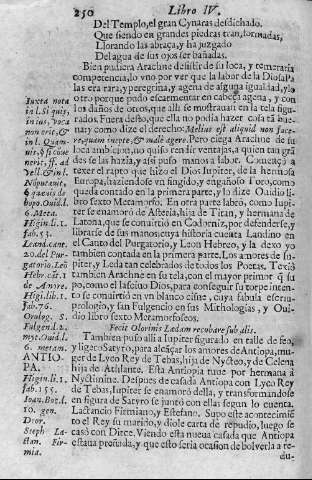 250 Libro IV.
Del Templo, el gran Cynaras desdichado.
Que siendo en grandes piedras transformadas,
Llorando las abraça, y ha juzgado
Del agua de sus ojos ser bañadas.
Bien pudiera Arachne desistir de su loca, y temeraria
competencia, lo vno por ver que la labor de la Diosa Pa
las era rara, y peregrina, y agena de alguna igualdad, y lo
otro porque pudo escarmentar en cabeça agena, y con
los daños de otros, que alli se mostrauan en la tela figu-
rados. Fuera desto, que ella no podia hazer cosa tã bue-
na, y como dize el derecho: Melius est aliquid non face-
re, quam inerte, & malè agere. Pero ciega Arachne de su
loca ambicion, no quiso rendir ventajas, a quien tan grã
des se las hazia, y asi puso manos a labor. Començò a
texer el rapto que hizo el Dios Iupiter, de la hermosa
Europa, haziendose vn fingido, y engañoso toro, como
queda contado en la primera parte, y lo dize Ouidio li-
bro sexto Metamorfo. En otra parte labrò, como Iupi-
ter se enamorò de Asteria, hija de Titan, y hermana de
Latona, que se conuirtiò en Codorniz, por defenderse, y
librarse de sus manos, cuya historia cuenta Landino en
el Canto del Purgatorio, y Leon Hebreo, y la dexo yo
tambien contada en la primera parte. Los amores de Iu-
piter, y Leda tan celebrados de todos los Poetas, Texiò
tambien Arachne en su tela, con el mayor primor q̃ su
po, como el lasciuo Dios, para conseguir su torpe inten-
to se conuirtiò en vn blanco cisne, cuya fabula escriue
Higinio, y san Fulgencio en sus Mithologias, y Oui-
dio libro sexto Metamorfoseos.
Fecit Olorinis Ledam recubare sub alis.
Tambien puso alli a Iupiter figurado en talle de feo,
y ligero Satyro, para alcãçar los amores de Antiopa, mu-
ger de Lyco Rey de Tebas, hija de Nycteo, y de Celena
hija de Athlante. Esta Antiopia tuuo por hermana à
Nyctinine. Despues de casada Antiopa con Lyco Rey
de Tebas, Iupiter se enamorò della, y transformandose
en figura de Satyro se juntò con ella: segun lo cuenta
Lactancio Firmiano, y Estefano. Supo este acontecimiẽ
to el Rey su marido, y diole carta de repudio, luego se
casò con Dirce. Viendo esta nueua casada que Antiopa
estaua preñada, y que esto seria ocasion de bolverla a re-
du-
Iuxta nota
Ouid.l.
6. Meta.
Higin.li.1.
fab.53.
Land.cant.
20.del Pur-
gatorio. Leõ
Heb.
de Amore.
Higi.lib.1.
fab.76.
Fulgen.l.2.
myt. Ouid.l.
6. metam.
ANTIO-
PA.
Higin.li.1.
fab.155.
Ioan.Boc.l.
10. gen.
Deor.
Steph La-
ctan. Fir-
mia.